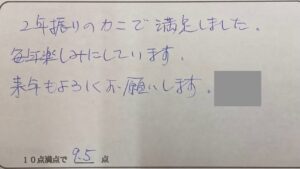 2年振りのカニで満足しました。
毎年楽しみにしています。
来年もよろしくお願いします。
10点満点で 9.5 点